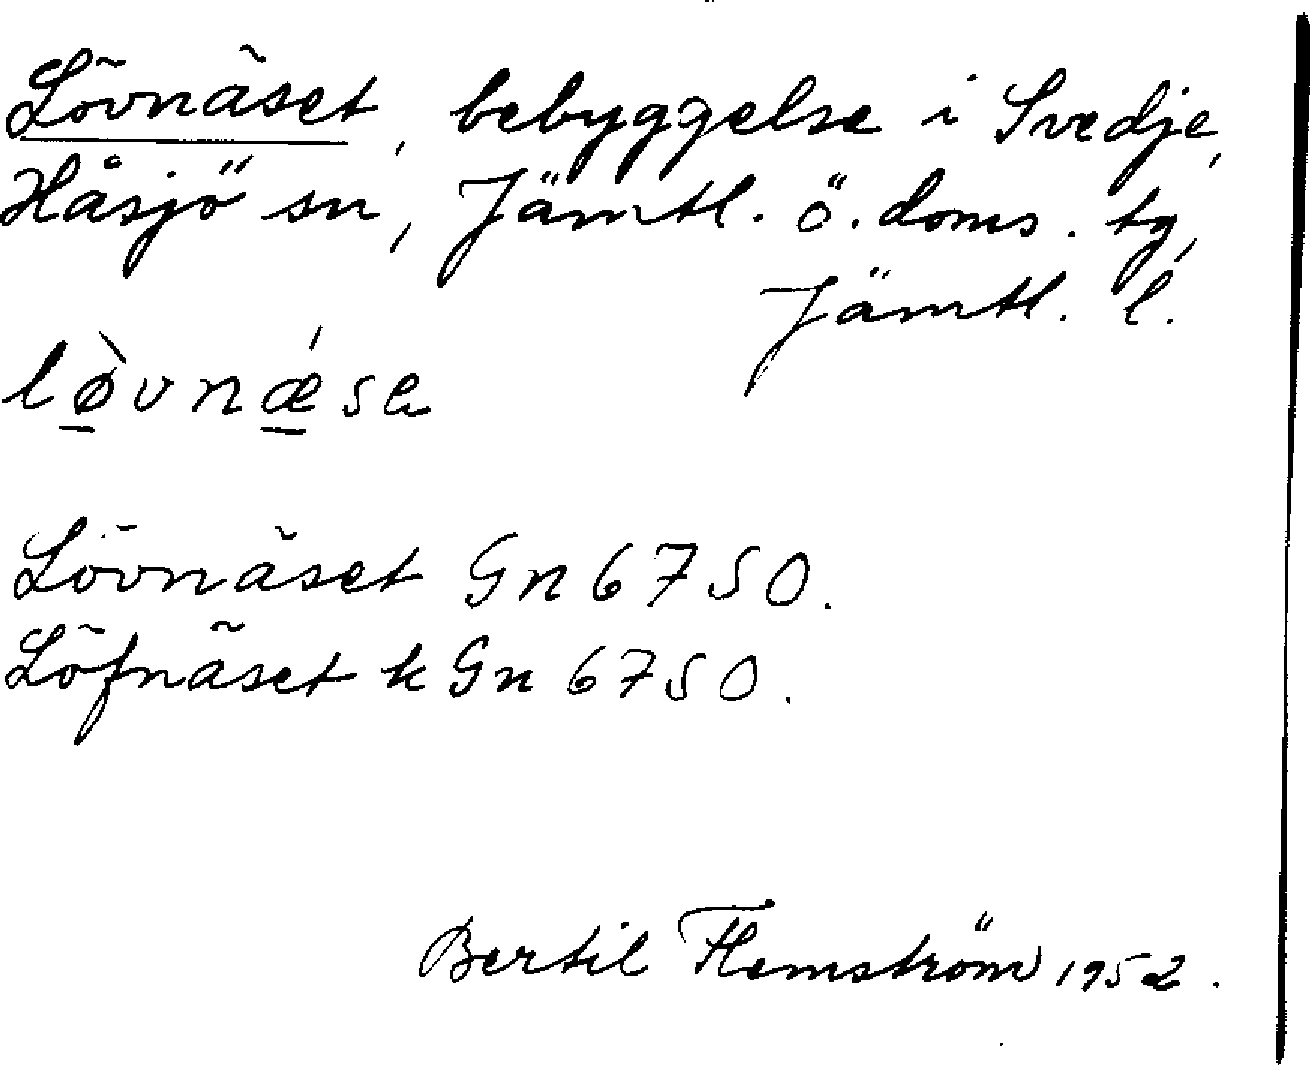 Lövnäset, bebyggelse i Svedje,
Håsjö sn, Jämtl. ö. doms. tg,
Jämtl. l.
lø̠̀vnǽ̠se
Lövnäset Gn 6750.
Löfnäset k Gn 6750.
Bertil Flemström 1952.